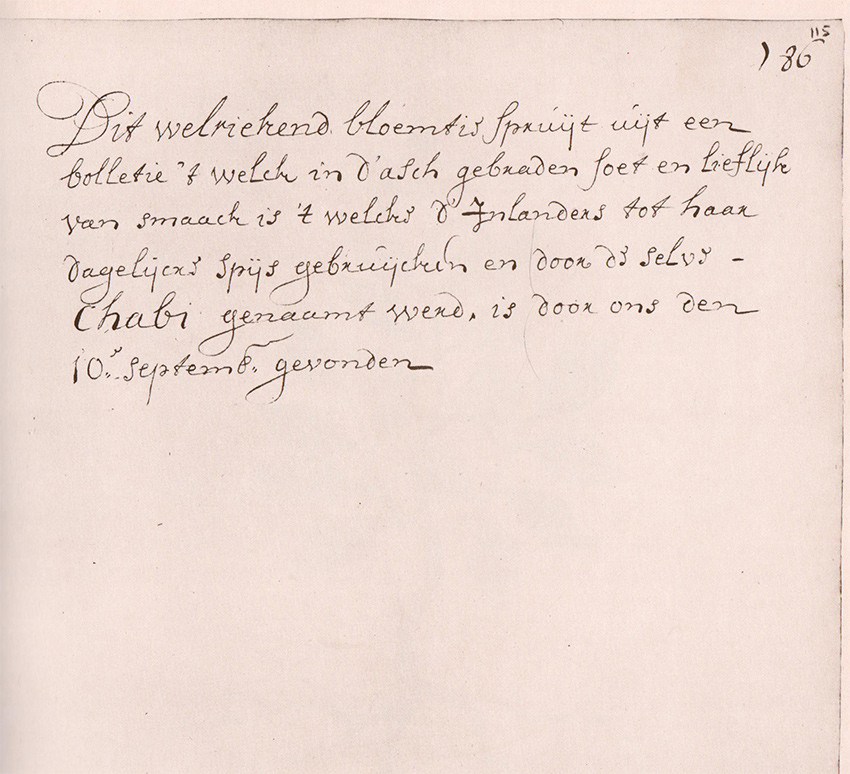 115
186
Dit welriekend bloemtie spruijt uijt een
bolletie 't welck in d'asch gebraden soet en lieflijk
van smaack is 't welcke d' Inlanders tot haar
dagelijcxe spijs gebruijcken en door de selve -
Chabi genaamt werd, is door ons den
10.e septemb.r gevonden